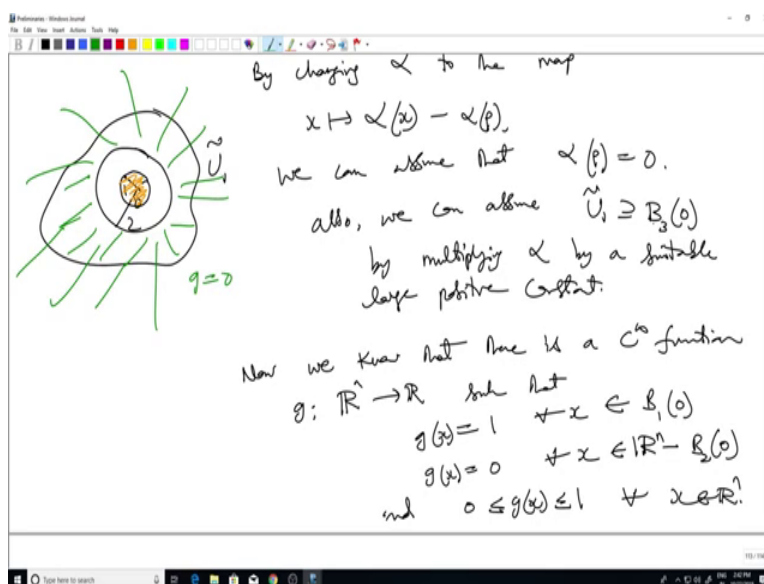 Preliminaries - Windows Journal
File Edit View Insert Actions Tools Help
By changing α to the map
x ↦ α(x) - α(p),
we can assume that α(p) = 0.
also, we can assume Ũ₁ ⊇ B₃(0)
by multiplying α by a suitable
large positive constant.
Now we know that there is a C^∞ function
g: ℝⁿ → ℝ such that
g(x) = 1 ∀ x ∈ B₁(0)
g(x) = 0 ∀ x ∈ ℝⁿ - B₂(0)
and 0 ≤ g(x) ≤ 1 ∀ x ∈ ℝⁿ.
Ũ₁
2
g = 0
Type here to search
ENG 2:42 PM